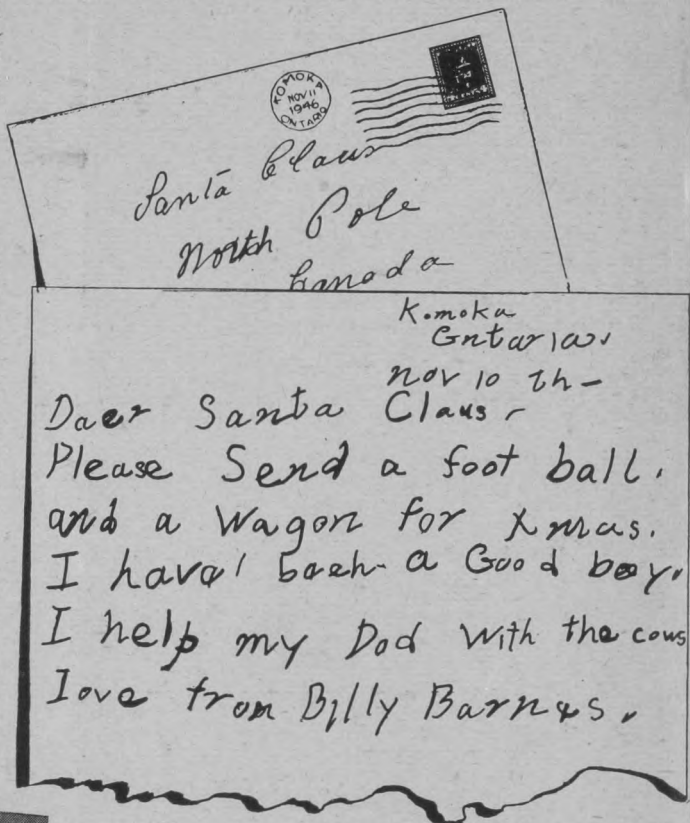 KOMOKA
NOV 11
1946
ONTARIO
Santa Claus
North Pole
Canada
Komoka
Ontario
Nov 10 th-
Daer Santa Claus,
Please Send a foot ball.
and a Wagon for Xmas.
I have been a Good boy.
I help my Dad With the cows
Love from Billy Barnes.